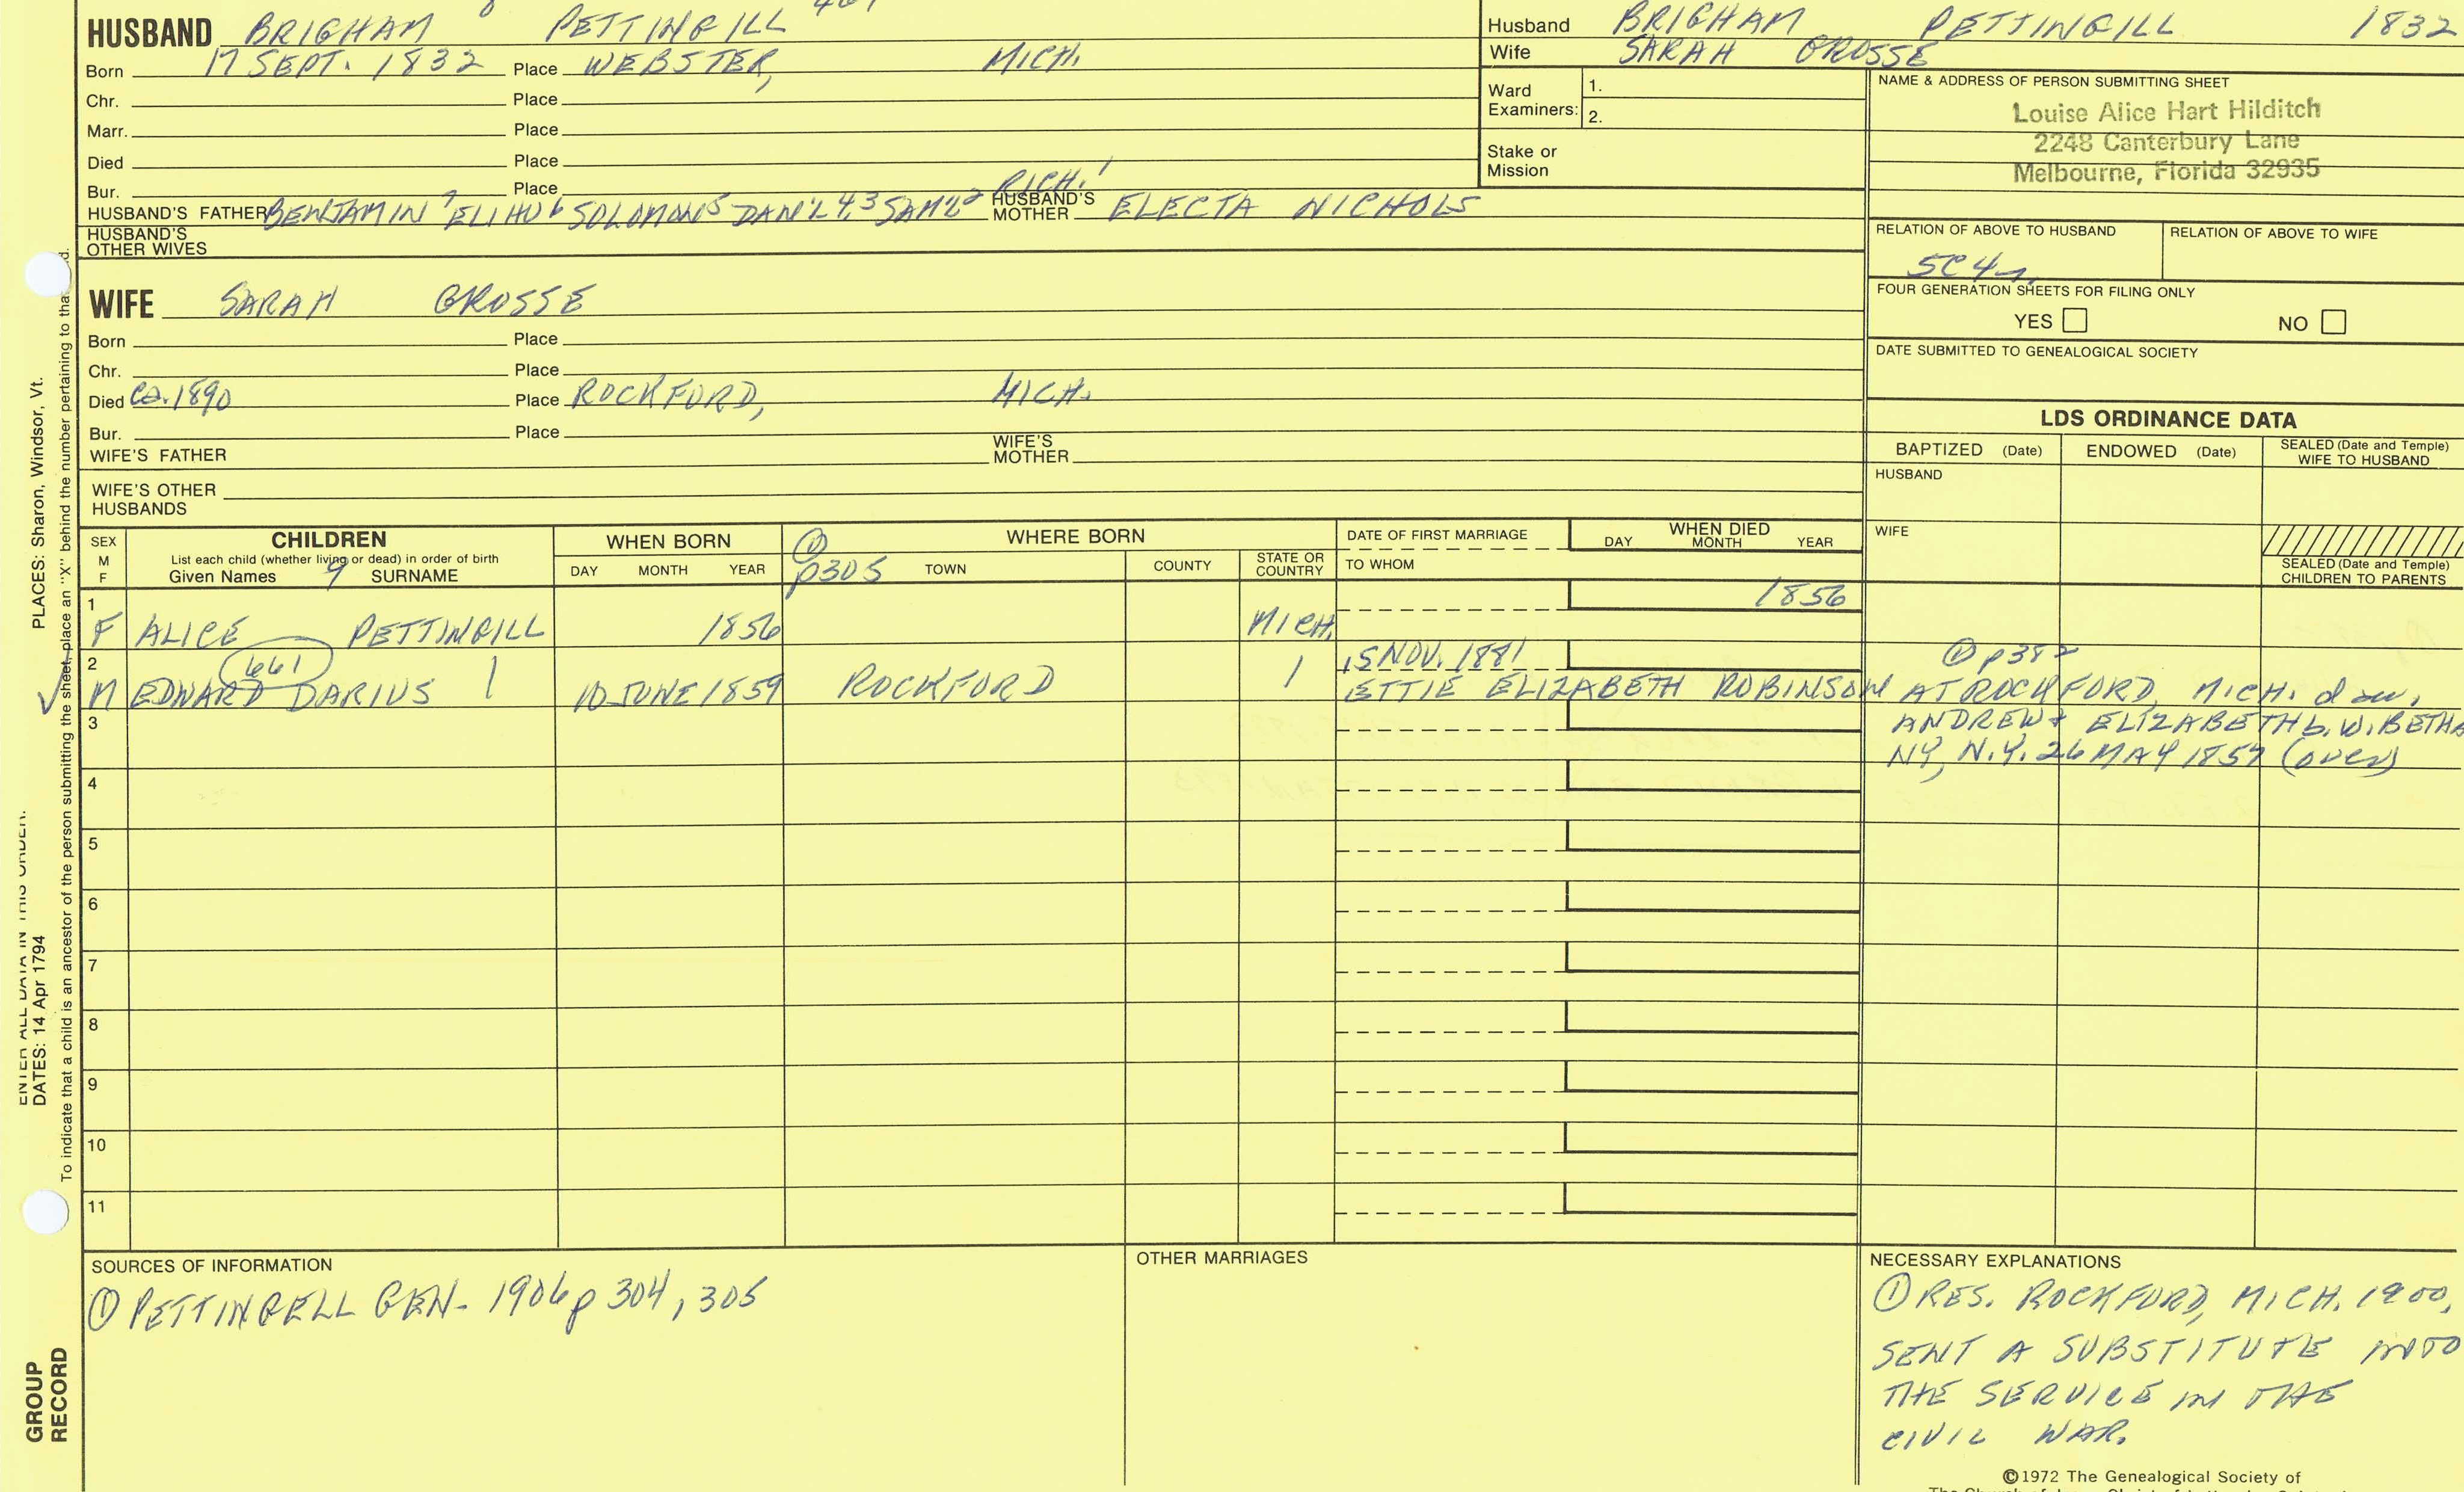 HUSBAND BRIGHAM 8 PETTINGILL
Born 17 SEPT. 1832 Place WEBSTER, MICH.
Chr. Place
Marr. Place
Died Place
Bur. Place
HUSBAND'S FATHER BENJAMIN 7 ELIHU 6 SOLOMON 5 DAN'L 4,3 SAM'L 2 RICH. 1 HUSBAND'S MOTHER ELECTA NICHOLS
HUSBAND'S
OTHER WIVES
Husband BRIGHAM PETTINGILL 1832
Wife SARAH GROSSE
Ward
Examiners: 1.
2.
Stake or
Mission
NAME & ADDRESS OF PERSON SUBMITTING SHEET
Louise Alice Hart Hilditch
2248 Canterbury Lane
Melbourne, Florida 32935
RELATION OF ABOVE TO HUSBAND RELATION OF ABOVE TO WIFE
5C4r
FOUR GENERATION SHEETS FOR FILING ONLY
YES NO
DATE SUBMITTED TO GENEALOGICAL SOCIETY
WIFE SARAH GROSSE
Born Place
Chr. Place
Died ca. 1890 Place ROCKFORD, MICH.
Bur. Place
WIFE'S FATHER WIFE'S MOTHER
WIFE'S OTHER
HUSBANDS
LDS ORDINANCE DATA
BAPTIZED (Date) ENDOWED (Date) SEALED (Date and Temple) WIFE TO HUSBAND
HUSBAND
WIFE
SEALED (Date and Temple)
CHILDREN TO PARENTS
SEX M F
CHILDREN
List each child (whether living or dead) in order of birth
Given Names 9 SURNAME
WHEN BORN
DAY MONTH YEAR
① p305
WHERE BORN
TOWN COUNTY STATE OR COUNTRY
DATE OF FIRST MARRIAGE
TO WHOM
WHEN DIED
DAY MONTH YEAR
1 F ALICE PETTINGILL 1856 MICH. 1856
2 √ M EDWARD DARIUS (661) 10 JUNE 1859 ROCKFORD 15 NOV. 1881
ETTIE ELIZABETH ROBINSON AT ROCKFORD, MICH. dau,
① p382
ANDREW + ELIZABETH b. W. BETHA
NY, N.Y. 26 MAY 1857 (over)
3
4
5
6
7
8
9
10
11
SOURCES OF INFORMATION
① PETTINGELL GEN- 1906 p 304, 305
OTHER MARRIAGES
NECESSARY EXPLANATIONS
① RES. ROCKFORD, MICH. 1900,
SENT A SUBSTITUTE INTO
THE SERVICE IN THE
CIVIL WAR.
©1972 The Genealogical Society of
PLACES: Sharon, Windsor, Vt.
ENTER ALL DATA IN THIS ORDER:
DATES: 14 Apr 1794
To indicate that a child is an ancestor of the person submitting the sheet, place an "X" behind the number pertaining to that
GROUP
RECORD